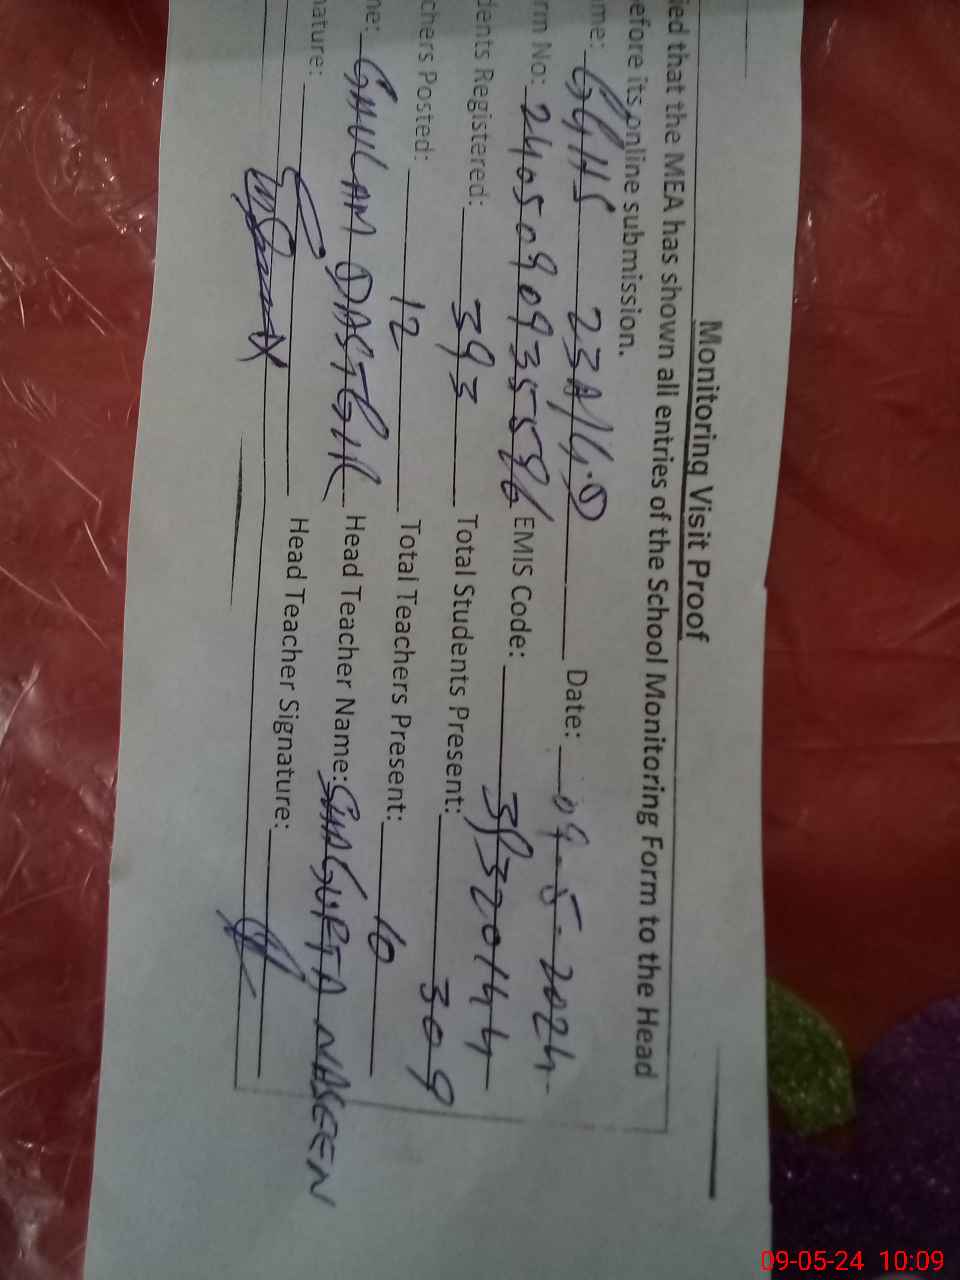 Monitoring Visit Proof
ied that the MEA has shown all entries of the School Monitoring Form to the Head
efore its online submission.
me: GGHS 23A/4.D Date: 09-5-2024
rm No: 24050909355596 EMIS Code: 39320144
dents Registered: 393 Total Students Present: 309
chers Posted: 12 Total Teachers Present: 10
ne: GHULAM DASTGIR Head Teacher Name: SHAGUFTA NASEEN
nature: Head Teacher Signature:
09-05-24 10:09